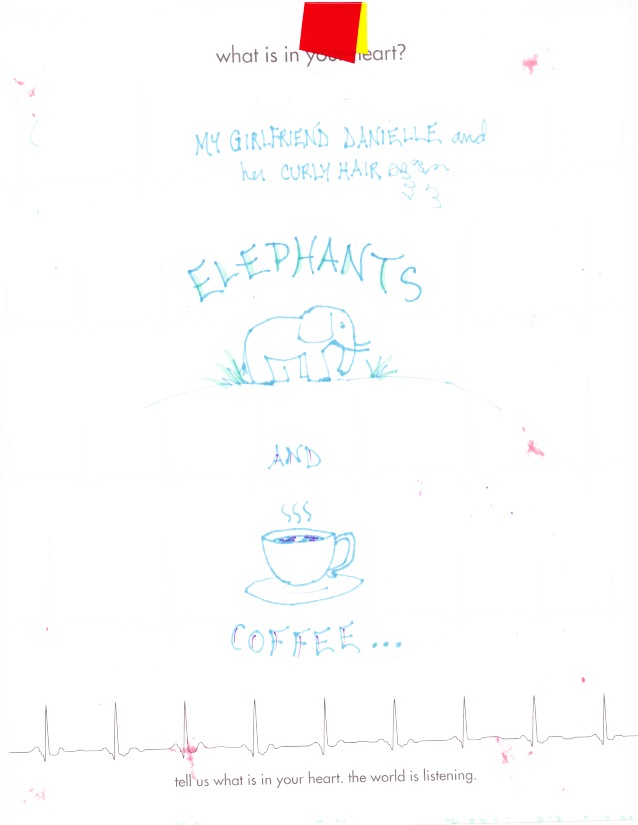 what is in your heart?
MY GIRLFRIEND DANIELLE and
her CURLY HAIR
ELEPHANTS
AND
COFFEE...
tell us what is in your heart. the world is listening.